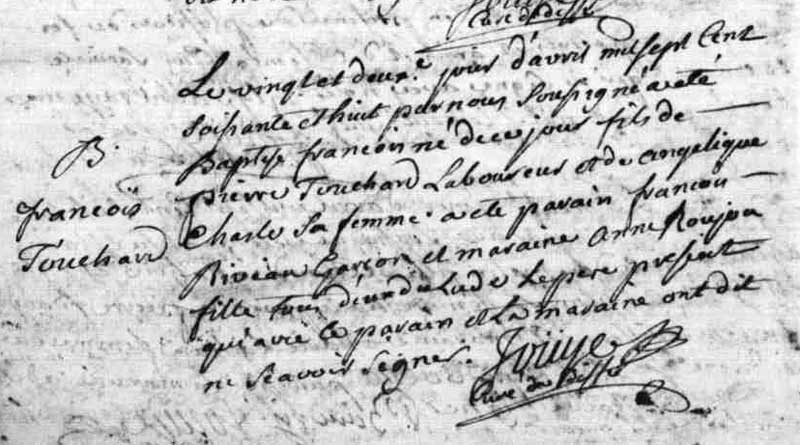 Curé de dissé
Le vingt et deux.e jour d'avril mil sept Cent
soissante et huit par nous soussigné a eté
Baptisé francois né de ce jour fils de
pierre Touchard Laboureur et de angelique
Charle sa femme. a eté parain francois
Riveau Garcon et maraine anne Roujou
fille tous deux du Lude Le pere present
qui avec le parain et La maraine ont dit
ne scavoir signer. Jouye
Curé de dissé
B.
francois
Touchard